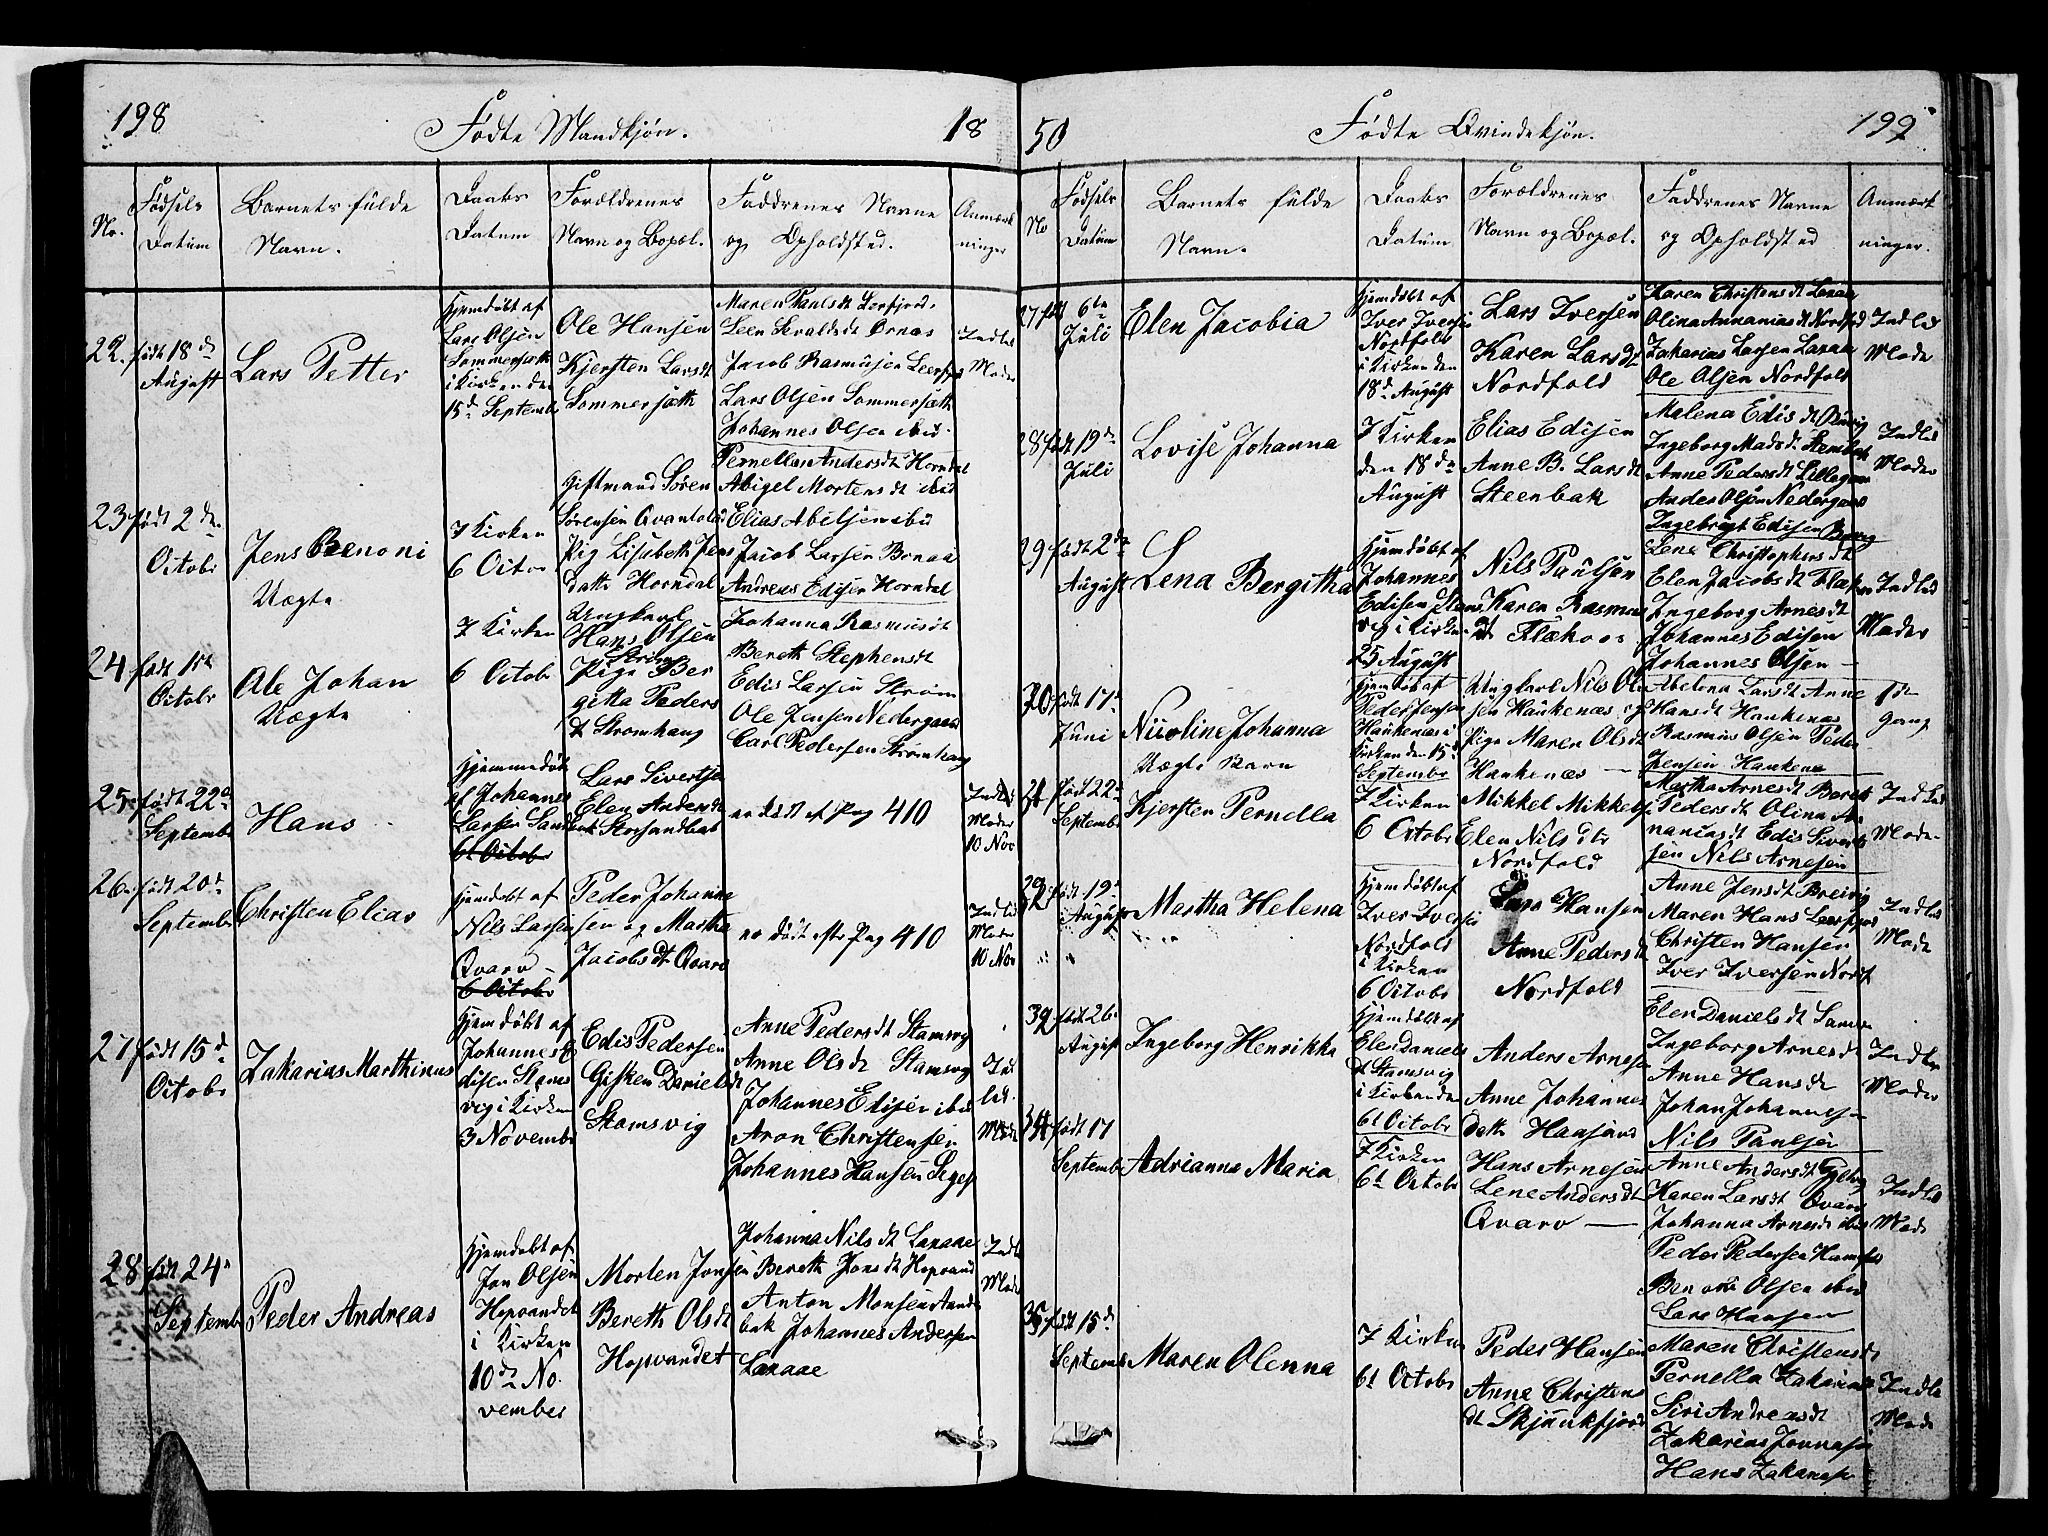 198
Fødte Mandkjøn.
18
No.
Fødsels
Datum
Barnets fulde
Navn.
Daabs
Datum
Forældrenes
Navn og Bopæl.
Faddrenes Navne
og Opholdsted.
Anmærk
ninger
22. født 18 de
August
Lars Petter
Hjemdøbt af
Lars Olsen
Sommersæth
i Kirken den
15d Septembr
Ole Hansen
Kjersten Larsdt
Sommersæth
Maren Paulsdt
Jacob Rasmusen
Lars Olsen Sommersæth
Johannes Olsen ibid
Indled
Moder
23 født 2 de
Octobr
Jens Benoni
Uægte
I Kirken
6 Octbr
Giftmand Søren
Sørensen
Pig Lisebeth Jens
datt Horndal
Pernella Andersdt Horndal
Abigel Mortensdt ibid
Elias Abelsen ibid
Jacob Larsen
Andreas Edisen Horndal
24 født 1ste
Octobr
Ole Johan
Uægte
I Kirken
6 Octobr
Ungkarl
Hans Olsen
Strøm
Pige Ber
gitta Peders
dt Stromhaug
Johanna Rasmusdt
Bereth Stephensdt
Edis Larsen Strøm
Ole Jensen Nedergaard
Carl Pedersen Strømhaug
25 født 22d
Septembr
Hans
Hjemmedøbt
af Johannes
Larsen
6t Octobr
Lars Sivertsen
Elen Andersdt
Storsandbak
er døbt ef Pag 410
Indled
Moder
10 Nov
26 født 20d
Septembr
Christen Elias
Hjemdøbt af
Nils Larsen
Qvarv
6 Octobr
Peder Johanne
sen og Martha
Jacobsdt Qvarv
er døbt eftr Pag 410
Indled
Moder
10 Nov
27 født 15 d
Octobr
Zakarias Marthinus
Hjemdøbt af
Johannes E
disen Stams
vig i Kirken
3 Novembr
Edis Pedersen
Gisken Danielsdt
Stamsvig
Anne Pedersdt Stamsvig
Anne Olsdt Stamsvig
Johannes Edisen ibid
Aron Christensen
Johannes Hansen
Ind
led.
Moder
28 født 24
Septembr
Peder Andreas
Hjemdøbt af
Jon Olsen
Hopvandet
i Kirken
10 de No
vember
Morten Jonsen
Bereth Olsdt
Hopvandet
Johanna Nilsdt Laxaae
Bereth Jonsdt Hopvand
Anton Monsen
bak Johannes Andersen
Laxaae
Indled
Moder
50
Fødte Qvindekjøn.
199
No
Fødsels
Datum
Barnets fulde
Navn.
Daabs
Datum
Forældrenes
Navn og Bopæl.
Faddrenes Navne
og Opholdsted
Anmærk
ninger.
27 født 6te
Juli
Elen Jacobia
Hjemdøbt af
Iver Iversen
Nordfold
i Kirken den
18d August
Lars Iversen
Karen Larsdt
Nordfold
Karen Christensdt Laxaa
Olina Annaniasdt Nordfold
Zakarias Larsen Laxaa
Ole Olsen Nordfold
Indled
Mode
28 født 19de
Juli
Lovise Johanna
I Kirken
den 18 de
August
Elias Edisen
Anne B. Larsdt
Steenbak
Malena Edisdt
Ingeborg Madsdt Stenbak
Anne Pedersdt Lillegaar
Anders Olsen Nedergaar
Ingebrigt Edisen
Indled
Moder
29 født 2de
August
Lena Bergitha
Hjemdøbt af
Johannes
Edisen Stams
vig i Kirken
25 August
Nils Paulsen
Karen Rasmus
dt Flækoe
Lena Christophersdt
Elen Jacobsdt Flækoe
Ingeborg Arnesdt
Johannes Edisen
Johannes Olsen
Indled
Moder
30 født 17
Juni
Nicoline Johanna
Uægte Barn
Hjemdøbt af
Peder Jensen
Haukenæs i
Kirken den 15d
Septembr
Ungkarl Nils Ol
sen Haukenæs og
Pige Maren Olsdt
Haukenæs
Abelona Larsdt Anne
Hansdt Haukenæs
Rasmus Olsen Peder
Jensen Haukenæs
1de
Gang
31 født 22
Septembr
Kjersten Pernella
I Kirken
6 Octobr
Mikkel Mikkels
Elen Nils dtr
Nordfold
Martha Arnesdt Bereth
Pedersdt Olina A
naniasdt Edis Sivert
sen Nils Arnesen
Indled
Mode
32 født 19
August
Martha Helena
Hjemdøbt af
Iver Iversen
Nordfold
i Kirken
6 Octobr
Lars Hansen
Anne Pedersdt
Nordfold
Anne Jensdt Breivig
Maren Hans
Christen Hansen
Iver Iversen Nordf
Indled
Mode
født 26
August
Ingeborg Henrikka
Hjemdøbt af
Elen Daniels
dt Stamsvig
i Kirken den
6t Octobr
Anders Arnesen
Anne Johannes
datt
Elen Danielsdt
Ingeborg Arnesdt
Anne Hansdt
Johan Johannes
Nils Paulsen
Indled
Moder
34 født 11
Septembr
Adrianna Maria
I Kirken
6t Octobr
Hans Arnesen
Lene Andersdt
Qvarv
Anne Andersdt
Karen Larsdt Qvarv
Johanna Arnesdt ibid
Peder Pedersen
Olsen ibid
Lars Hansen
Indled
Mode
35 født 15d
Septembr
Maren Olenna
I Kirken
6t Octobr
Peder Hansen
Anne Christens
dt Skjunkfjord
Maren Christensdt
Pernella Zakarias
Siri Andreasdt
Zakarias Jonnasen
Hans Zakariasen
Indled
Mode